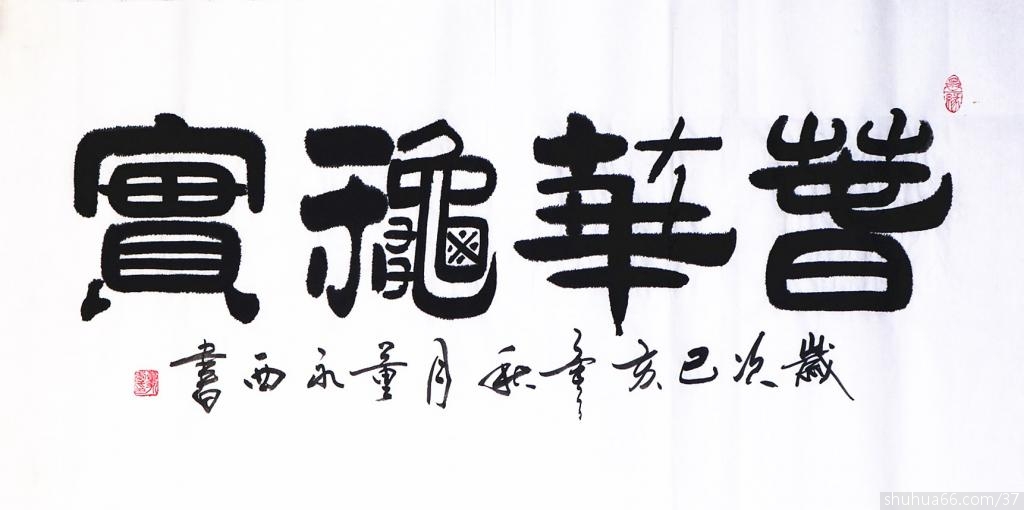 萅華龝實
歲次己亥年秋月董永西書
shuhua66.com/37